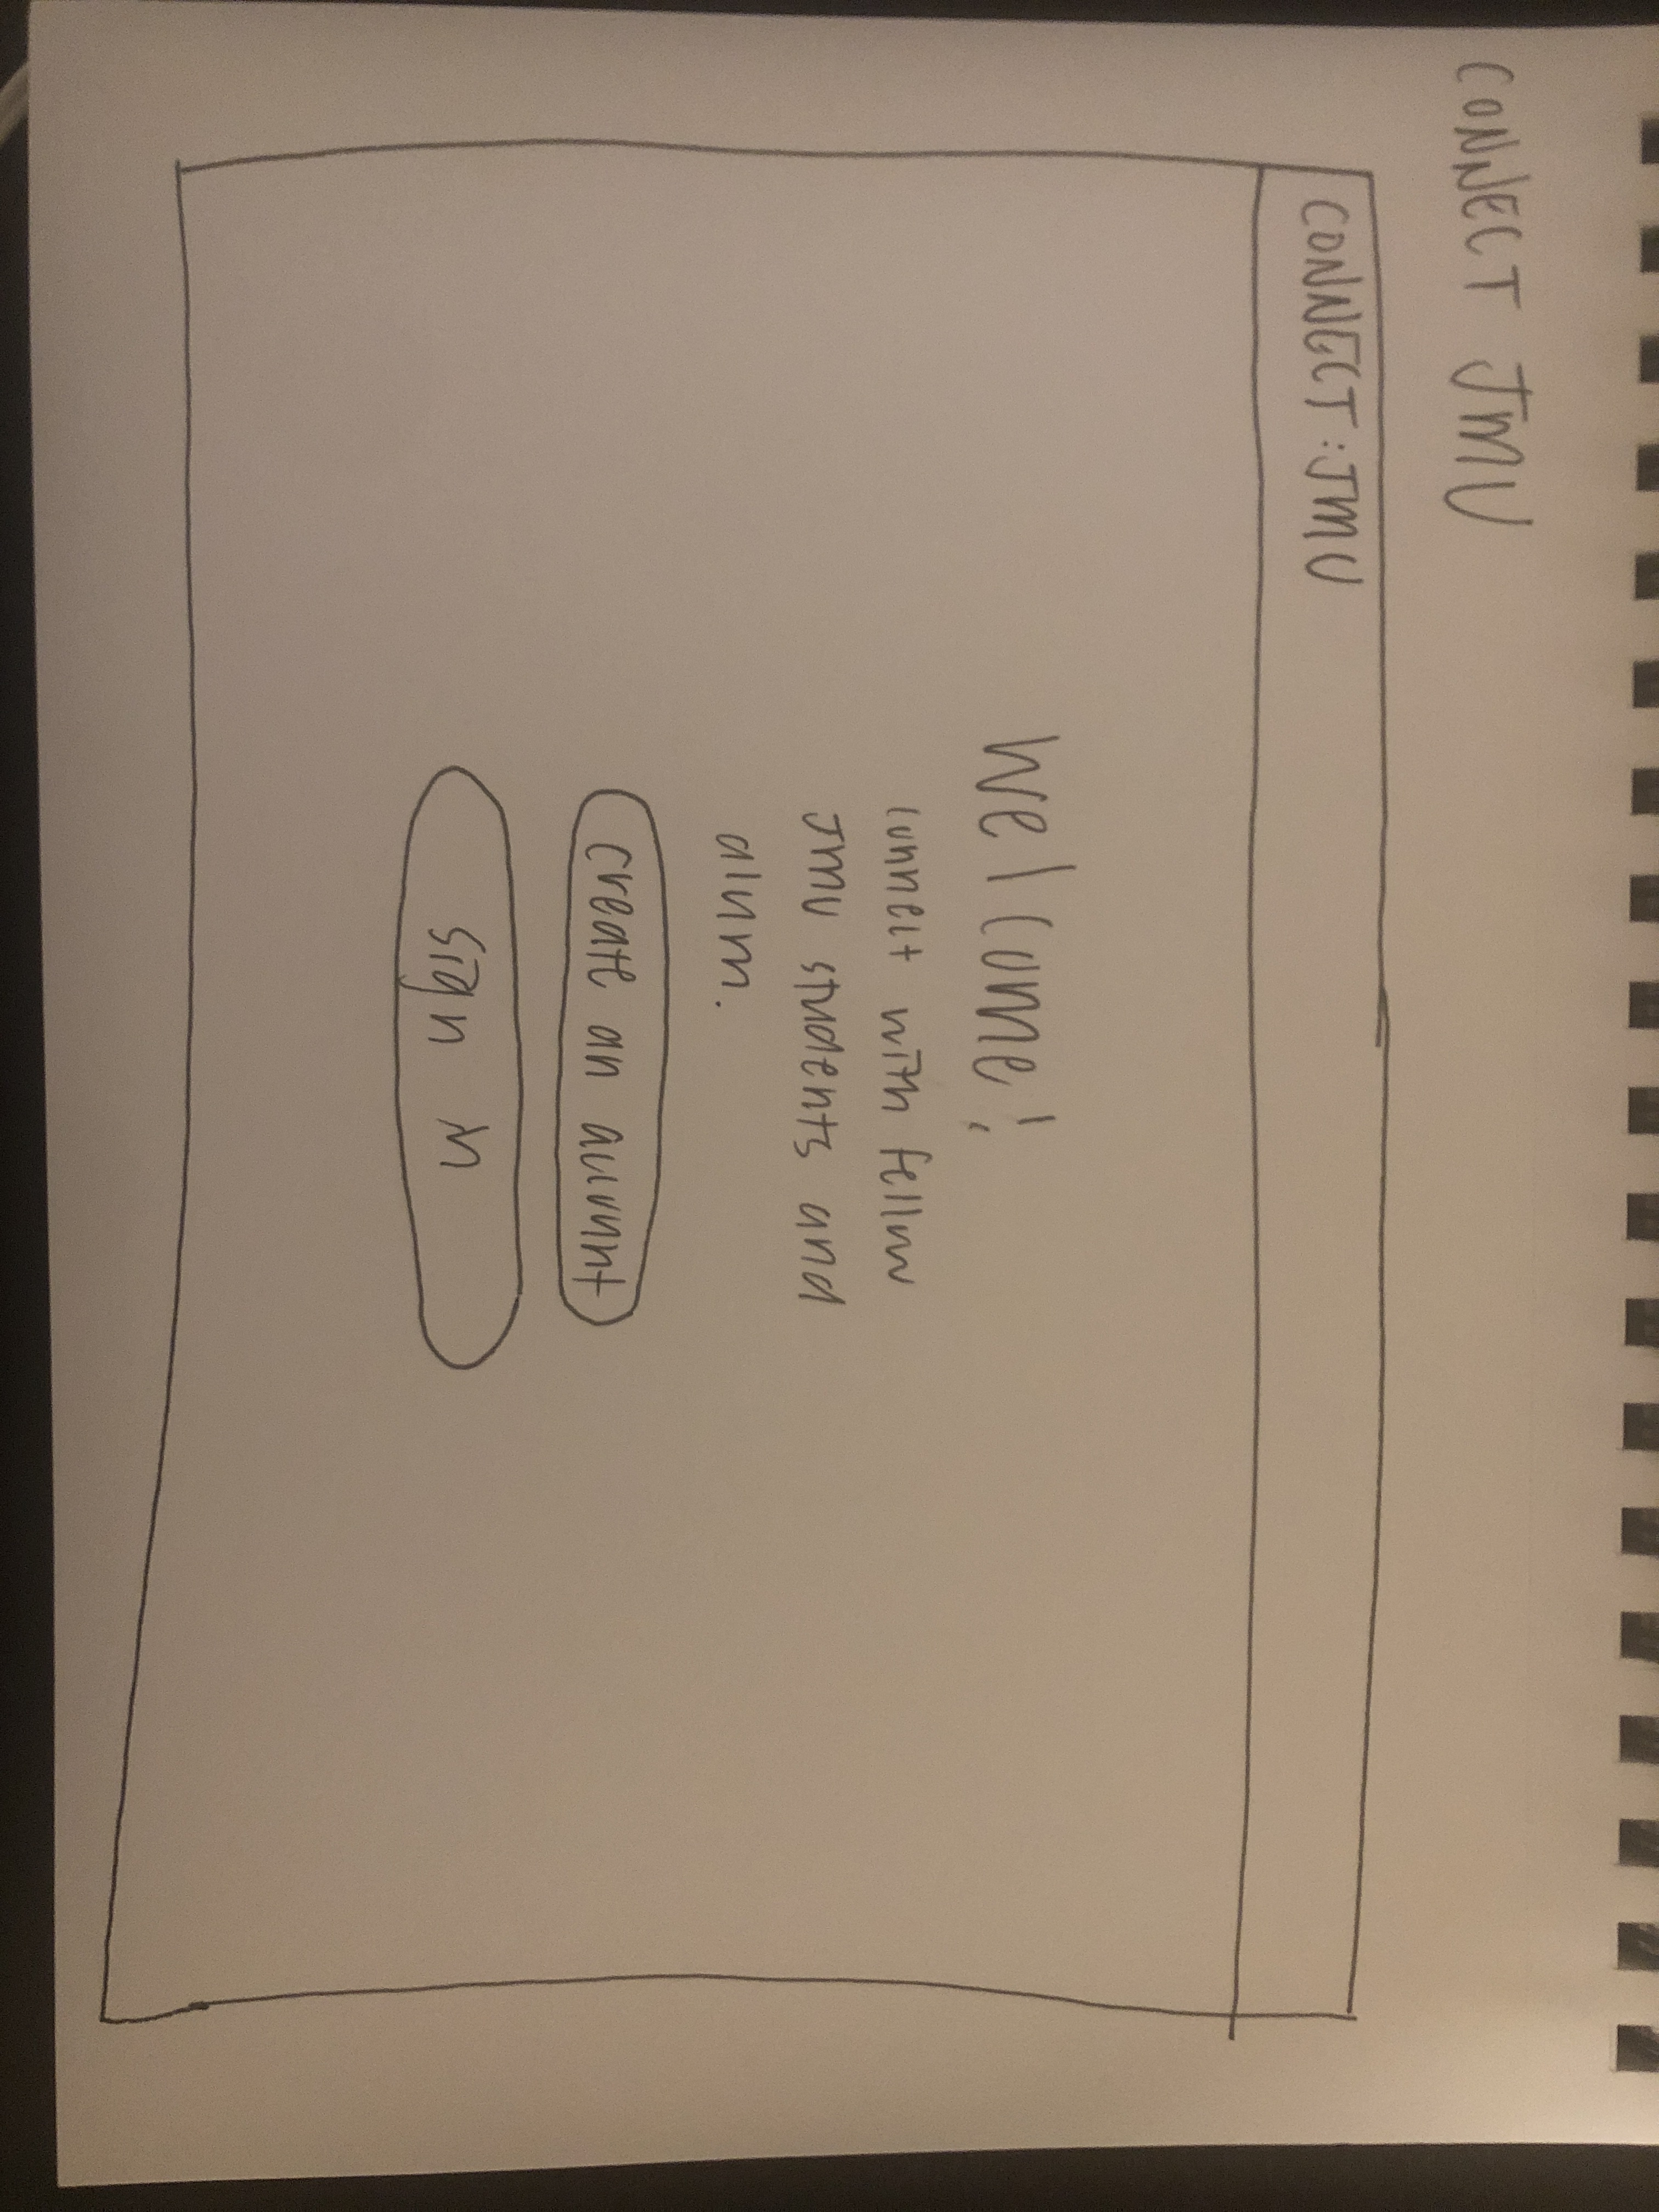 CONNECT JMU
CONNECT:JMU
Welcome!
connect with fellow
JMU students and
alum.
create an account
sign in